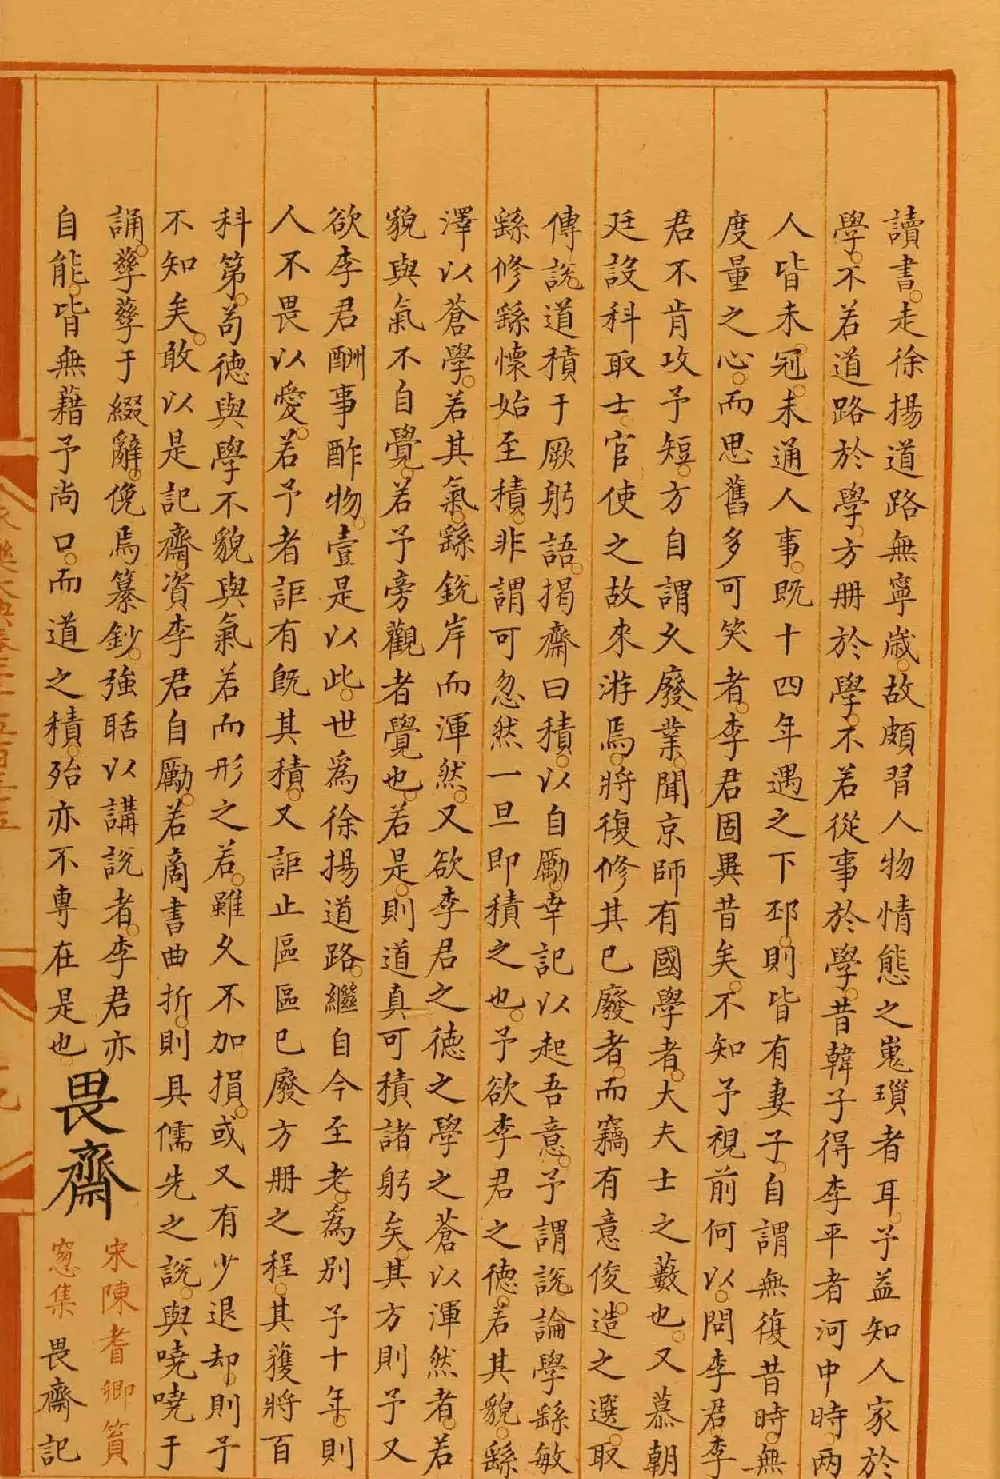 讀書。走徐揚道路無寧歲。故頗習人物情態之嵬瑣者耳。予益知人家於
學。不若道路於學。方冊於學。不若從事於學。昔韓子得李平者河中時。兩
人皆未冠。未通人事。既十四年遇之下邳。則皆有妻子。自謂無復昔時。無
度量之心。而思舊多可笑者。李君固異昔矣。不知予視前何以。問李君。李
君不肯攻予短。方自謂久廢業。聞京師有國學者。大夫士之藪也。又慕朝
廷設科取士。官使之故來游焉。將復修其已廢者。而竊有意俊造之選。取
傳說道積于厥躬語。揭齋曰積。以自勵。幸記以起吾意。予謂說論學繇敏
繇修繇懷始至積。非謂可忽然一旦即積之也。予欲李君之德。若其貌。繇
澤以蒼學。若其氣。繇銳岸而渾然。又欲李君之德之學之蒼以渾然者。若
貌與氣不自覺。若予旁觀者覺也。若是。則道真可積諸躬矣。其方則予又
欲李君酬事酢物。壹是以此。世為徐揚道路。繼自今至老。為別予十年。則
人不畏以愛。若予者詎有既其積。又詎止區區已廢方冊之程。其獲將百
科第。苟德與學不貌與氣若而形之若。雖久不加損。或又有少退却。則予
不知矣。敢以是記齋。資李君自勵。若商書曲折。則具儒先之說。與嘵嘵于
誦。孳孳于綴辭。俛焉纂鈔。強聒以講說者。李君亦
自能。皆無藉予尚口。而道之積。殆亦不專在是也
畏齋
宋陳耆卿篔
窻集
畏齋記